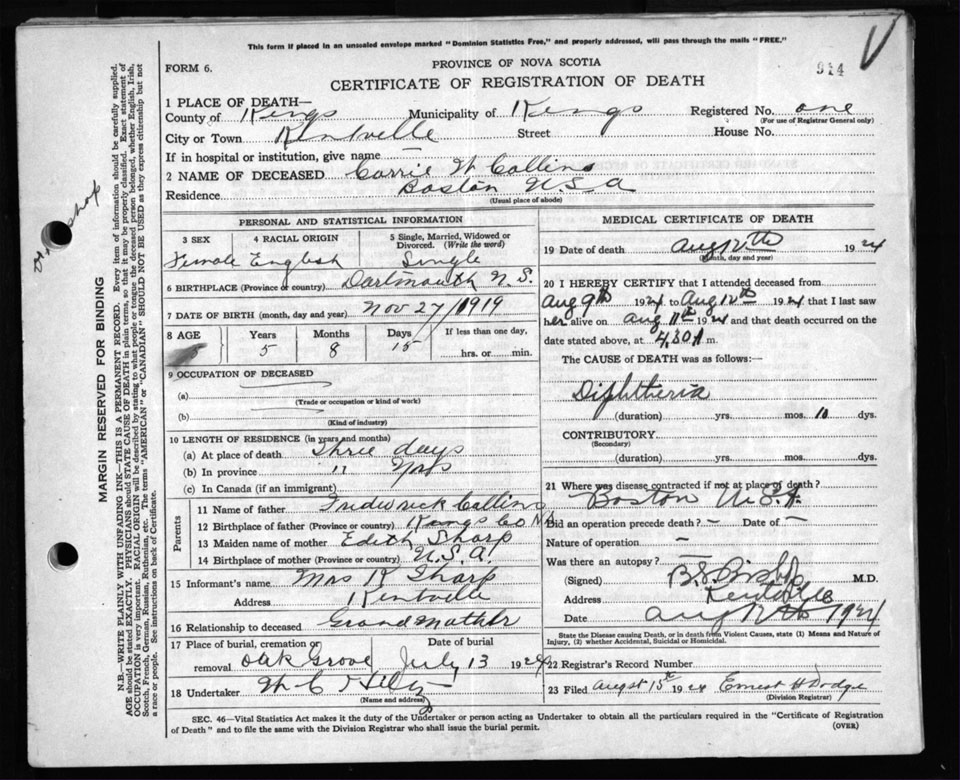 This form if placed in an unsealed envelope marked "Dominion Statistics Free," and properly addressed, will pass through the mails "FREE."
FORM 6.
PROVINCE OF NOVA SCOTIA
914
CERTIFICATE OF REGISTRATION OF DEATH
1 PLACE OF DEATH—
County of Kings Municipality of Kings Registered No. one
(For use of Registrar General only)
City or Town Kentville Street House No.
If in hospital or institution, give name —
2 NAME OF DECEASED Carrie W Collins
Residence Boston U.S.A
(Usual place of abode)
PERSONAL AND STATISTICAL INFORMATION
3 SEX 4 RACIAL ORIGIN 5 Single, Married, Widowed or Divorced. (Write the word)
Female English Single
6 BIRTHPLACE (Province or country) Dartmouth N.S.
7 DATE OF BIRTH (month, day and year) Nov 27/1919
8 AGE Years Months Days If less than one day,
5 8 15 hrs. or min.
9 OCCUPATION OF DECEASED
(a)
(Trade or occupation or kind of work)
(b)
(Kind of industry)
10 LENGTH OF RESIDENCE (in years and months)
(a) At place of death three days
(b) In province " "
(c) In Canada (if an immigrant)
Parents
11 Name of father Frederick Collins
12 Birthplace of father (Province or country) Kings Co NS
13 Maiden name of mother Edith Sharp
14 Birthplace of mother (Province or country) U.S.A.
15 Informant's name Mrs R Sharp
Address Kentville
16 Relationship to deceased Grandmother
17 Place of burial, cremation or removal Date of burial
Oak Grove July 13 1924
18 Undertaker
(Name and address)
MEDICAL CERTIFICATE OF DEATH
19 Date of death Aug 12th 1924
(Month, day and year)
20 I HEREBY CERTIFY that I attended deceased from
Aug 9th 1924 to Aug 12th 1924 that I last saw
her alive on Aug 11th 1924 and that death occurred on the
date stated above, at 4.30 A m.
The CAUSE of DEATH was as follows:—
Diphtheria
(duration) yrs. mos. 10 dys.
CONTRIBUTORY
(Secondary)
(duration) yrs. mos. dys.
21 Where was disease contracted if not at place of death?
Boston U.S.A.
Did an operation precede death? — Date of —
Nature of operation —
Was there an autopsy? —
(Signed) B.S. Bishop M.D.
Address Kentville
Date Aug 12th 1924
State the Disease causing Death, or in death from Violent Causes, state (1) Means and Nature of Injury, (2) whether Accidental, Suicidal or Homicidal.
22 Registrar's Record Number
23 Filed August 15th 1924 Ernest H Dodge
(Division Registrar)
SEC. 46—Vital Statistics Act makes it the duty of the Undertaker or person acting as Undertaker to obtain all the particulars required in the "Certificate of Registration
of Death" and to file the same with the Division Registrar who shall issue the burial permit. (OVER)
MARGIN RESERVED FOR BINDING
N.B.—WRITE PLAINLY WITH UNFADING INK—THIS IS A PERMANENT RECORD. Every item of information should be carefully supplied.
AGE should be stated EXACTLY. PHYSICIANS should STATE CAUSE OF DEATH in plain terms, so that it may be properly classified. Exact statement of
OCCUPATION is very important. RACIAL ORIGIN will be described by stating to what people or tongue the deceased person belonged, whether English, Irish,
Scotch, French, German, Russian, Ruthenian, etc. The terms "AMERICAN" or "CANADIAN" SHOULD NOT BE USED as they express citizenship but not
a race or people. See instructions on back of Certificate.